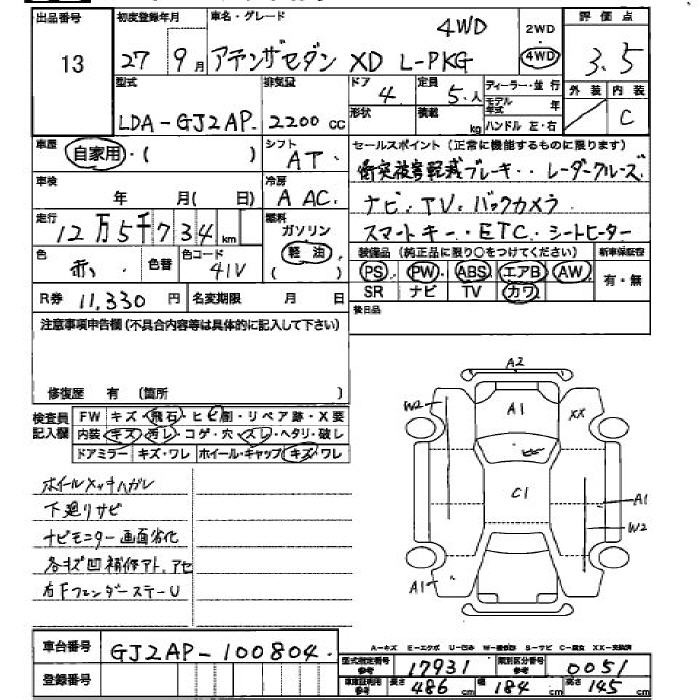 出品番号 初度登録年月 車名・グレード 4WD 2WD 評価点
13 27年9月 アテンザセダン XD L-PKG 4WD 3.5
型式 排気量 ドア 4 定員 5人 ディーラー・並行 外装 内装
LDA-GJ2AP 2200cc 形状 積載 kg モデル年式 年 C
ハンドル 左・右
車歴 自家用・( ) シフト AT セールスポイント(正常に機能するものに限ります)
衝突被害軽減ブレーキ・・レーダークルーズ
車検 年 月(日) 冷房 A AC
ナビ・TV・バックカメラ
走行 12万5千734km 燃料 ガソリン 軽油
スマートキー・ETC・シートヒーター
色 赤 色替 色コード 41V
装備品(純正品に限り○をつけてください) 新車保証書
PS PW ABS エアB AW 有・無
SR ナビ TV カワ
R券 11,330円 名変期限 月 日
後日品
注意事項申告欄(不具合内容等は具体的に記入して下さい)
修復歴 有 (箇所 )
検査員記入欄 FW キズ・飛石・ヒビ割・リペア跡・X要
内装・キズ・汚レ・コゲ・穴・スレ・ヘタリ・破レ
ドアミラー キズ・ワレ ホイール・キャップ キズ・ワレ
A2
W2 A1 XX
C1
A1
W2
A1
ホイールメッキハガレ
下廻りサビ
ナビモニター画面劣化
各キズ凹補修アト、アセ
右Fフェンダーステー U
A-キズ E-エクボ U-凹み W-補修跡 S-サビ C-腐食 XX-交換済
車台番号 GJ2AP-100804
型式指定番号 参考 17931 類別区分番号 参考 0051
登録番号
車庫証明用 参考 長さ 486cm 幅 184cm 高さ 145cm